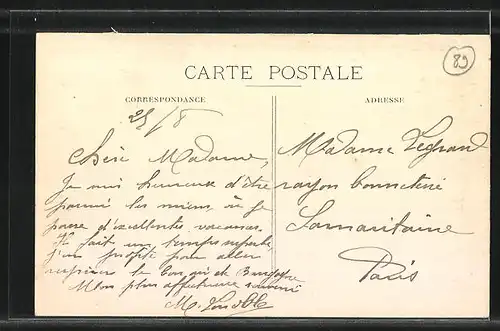 89
CARTE POSTALE
CORRESPONDANCE
ADRESSE
25/8
Chère Madame,
Je suis heureuse d'être
parmi les miens où je
passe d'excellentes vacances.
Il fait un temps superbe
j'en profite pour aller
respirer le bon air de Bourgogne
Mon plus affectueux souvenir
M.
Madame Legrand
rayon bonneterie
Samaritaine
Paris